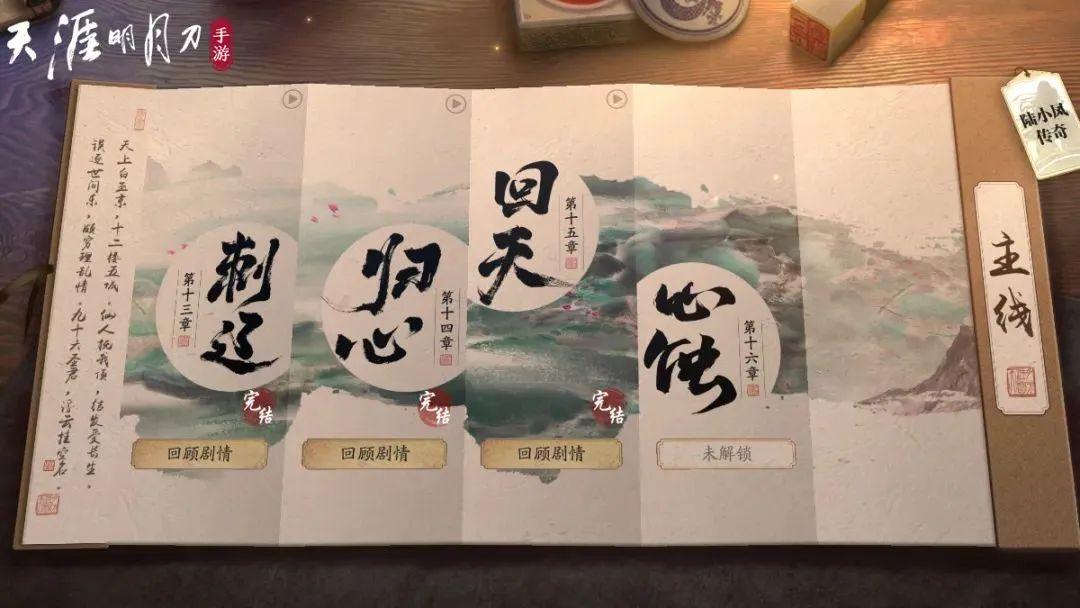 天涯明月刀
手游
天上白玉京，十二楼五城，仙人抚我顶，结发受长生。
误逐世间乐，颇穷理乱情，九十六圣君，浮云挂空名。
第十三章
刺辽
完结
回顾剧情
第十四章
归心
完结
回顾剧情
第十五章
回天
完结
回顾剧情
第十六章
心蚀
未解锁
主线
陆小凤
传奇